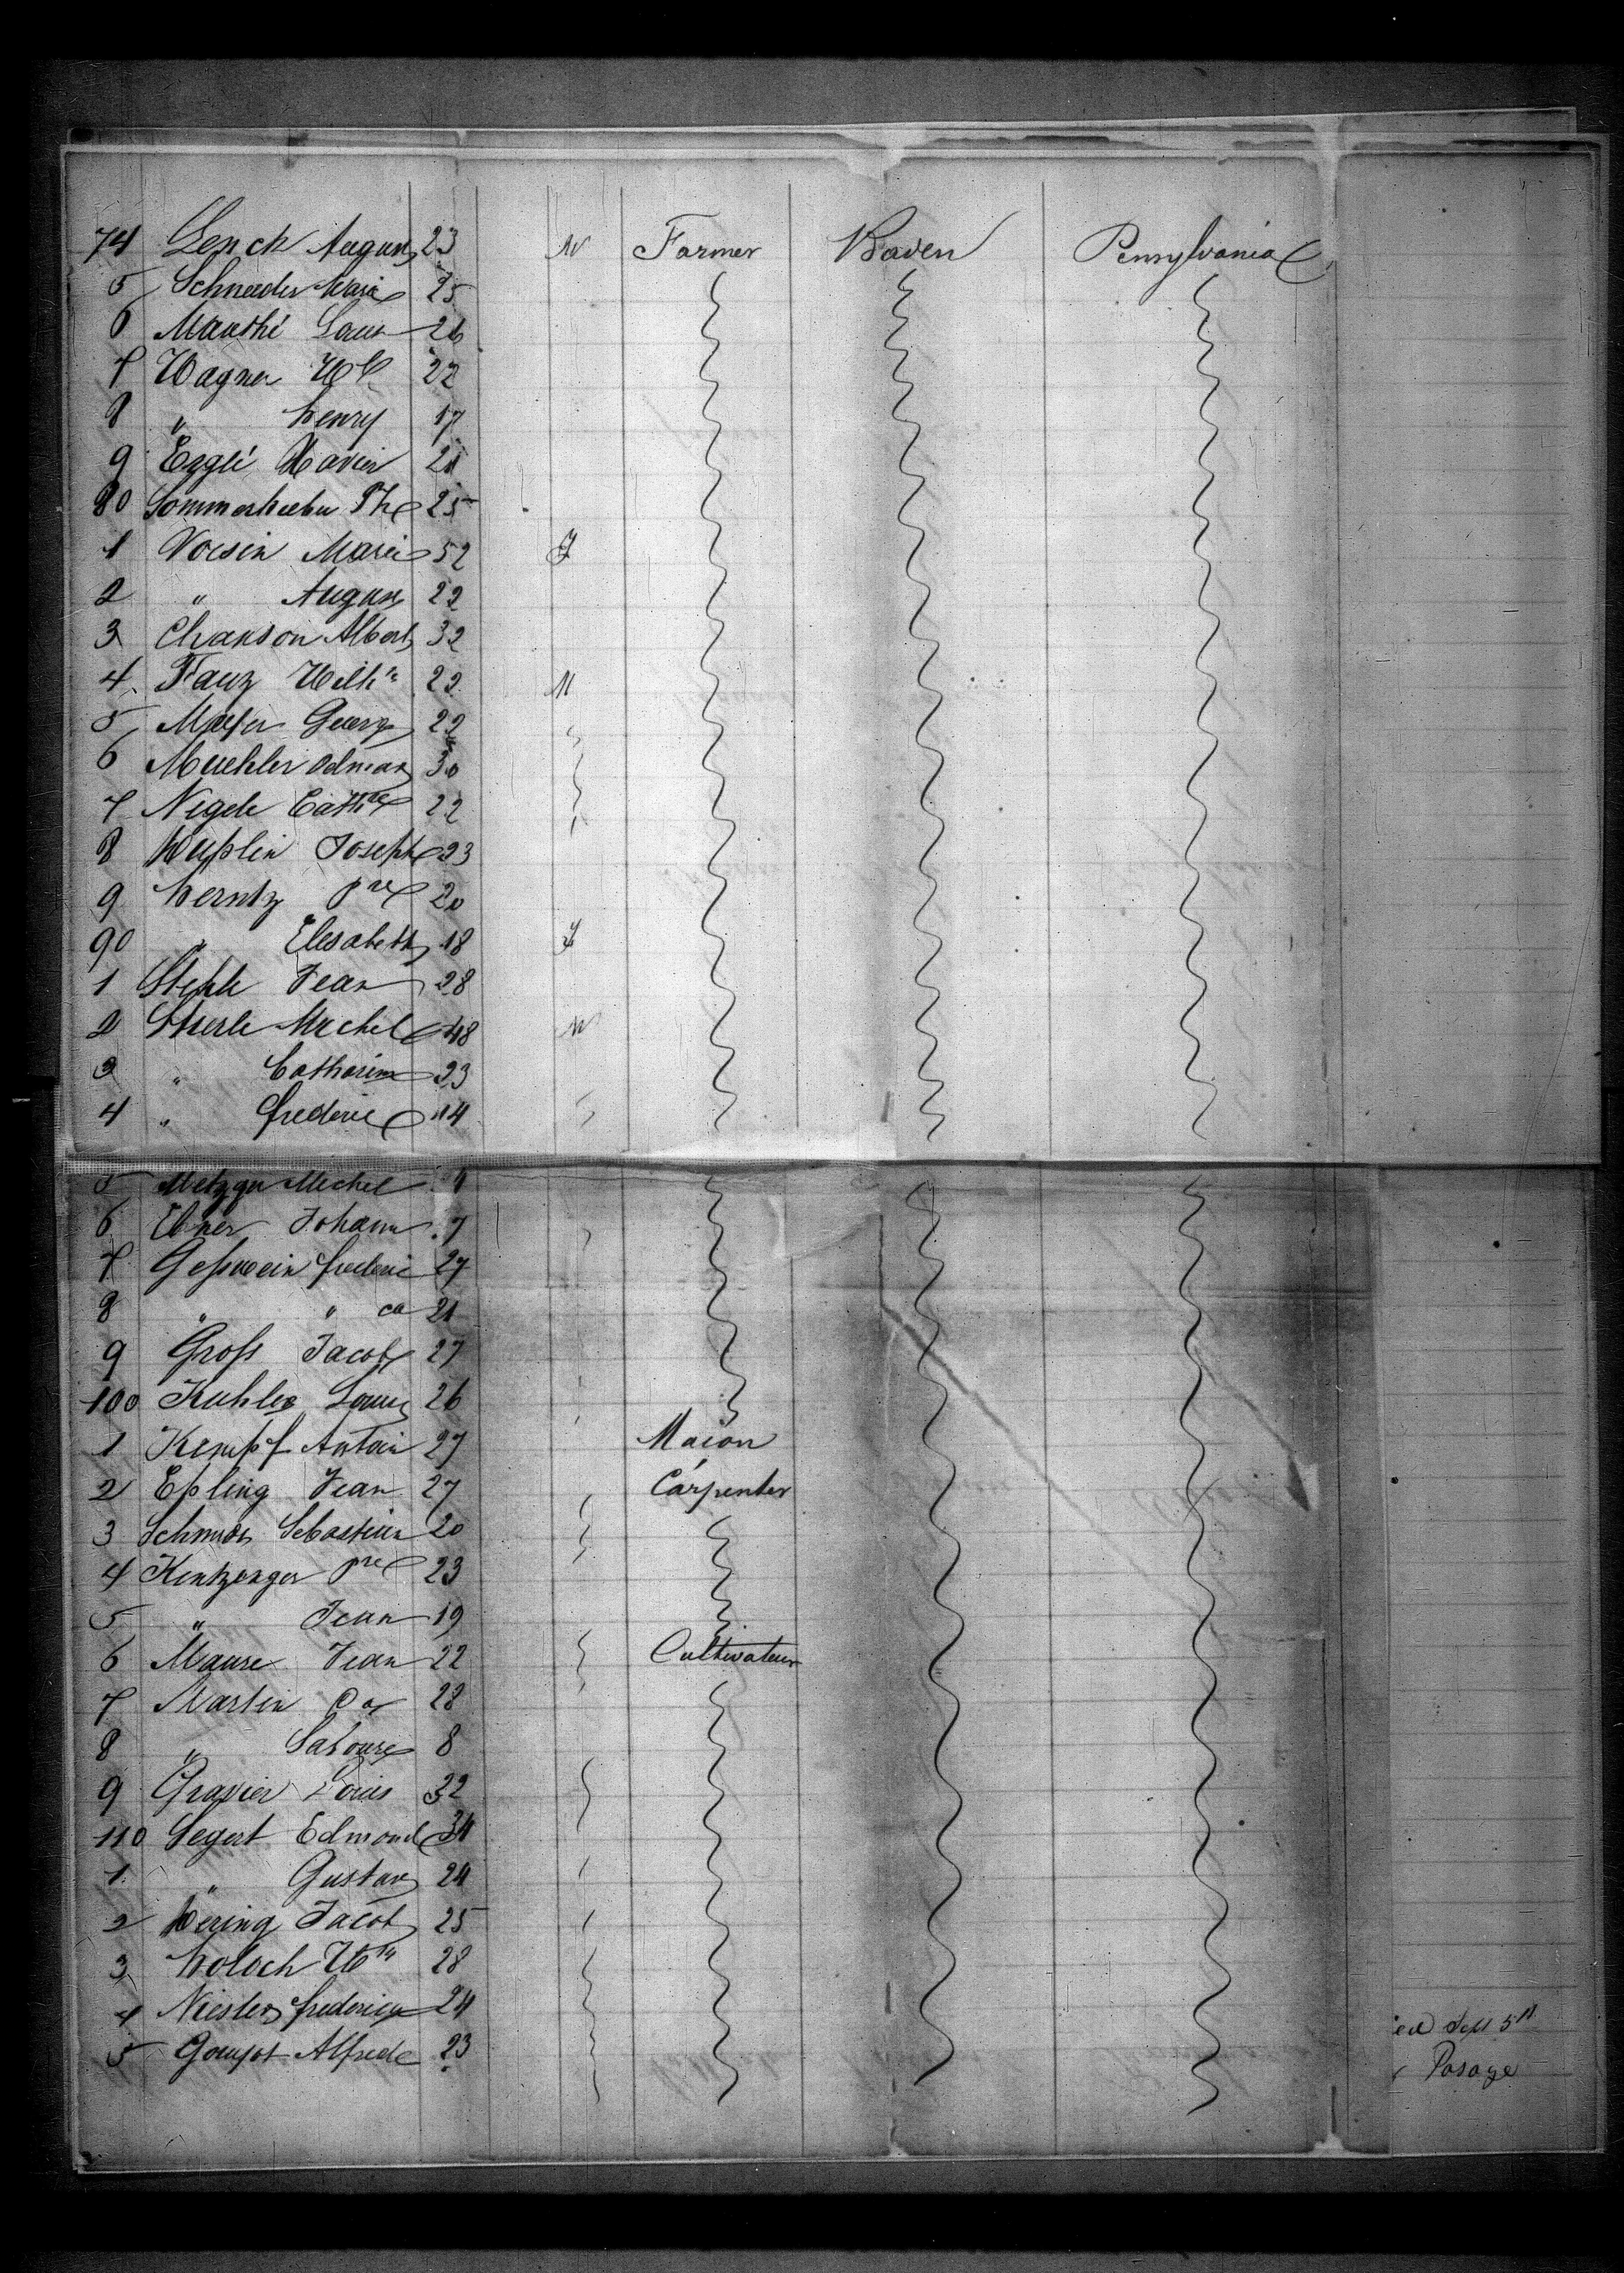 74 Lenck August 23 M Farmer Baden Pennsylvania
5 Schneeder Marie 25
6 Manthé Louis 26
7 Wagner Wl 22
8 " henry 17
9 Erglé Xavier 21
80 Sommerhueber The 25
1 Voisin Marie 52 F
2 " August 22
3 Chanson Albert 32
4 Fauz Wilhm 22 M
5 Georg 22
6 Muehler 30
7 Nigele Cathne 22
8 Joseph 23
9 herntz Pre 20
90 " Elesabeth 18 F
1 Stehle Jean 28
2 Stierle Michel 48 M
3 " Catharine 23
4 " frederic 14
5 Metzger Michel
6 Ebner Johann 7
7 Geßwein frederic 27
8 " " ca 21
9 Groß Jacob 27
100 Kuhler Louis 26
1 Kempf Antoin 27 Maçon
2 Epling Jean 27 Carpenter
3 Schmidt Sebastien 20
4 Kentzenger Pre 23
5 " Jean 19
6 Maure Jean 22 Cultivateur
7 Martin 28
8 " 8
9 Gravier Louis 32
110 Segert Edmond 34
1 " Gustav 24
2 hering Jacob 25
3 holoch Wm 28
4 Niesler frederic 24
5 Goujot Alfred 23
ed Sept 5th
Pasage